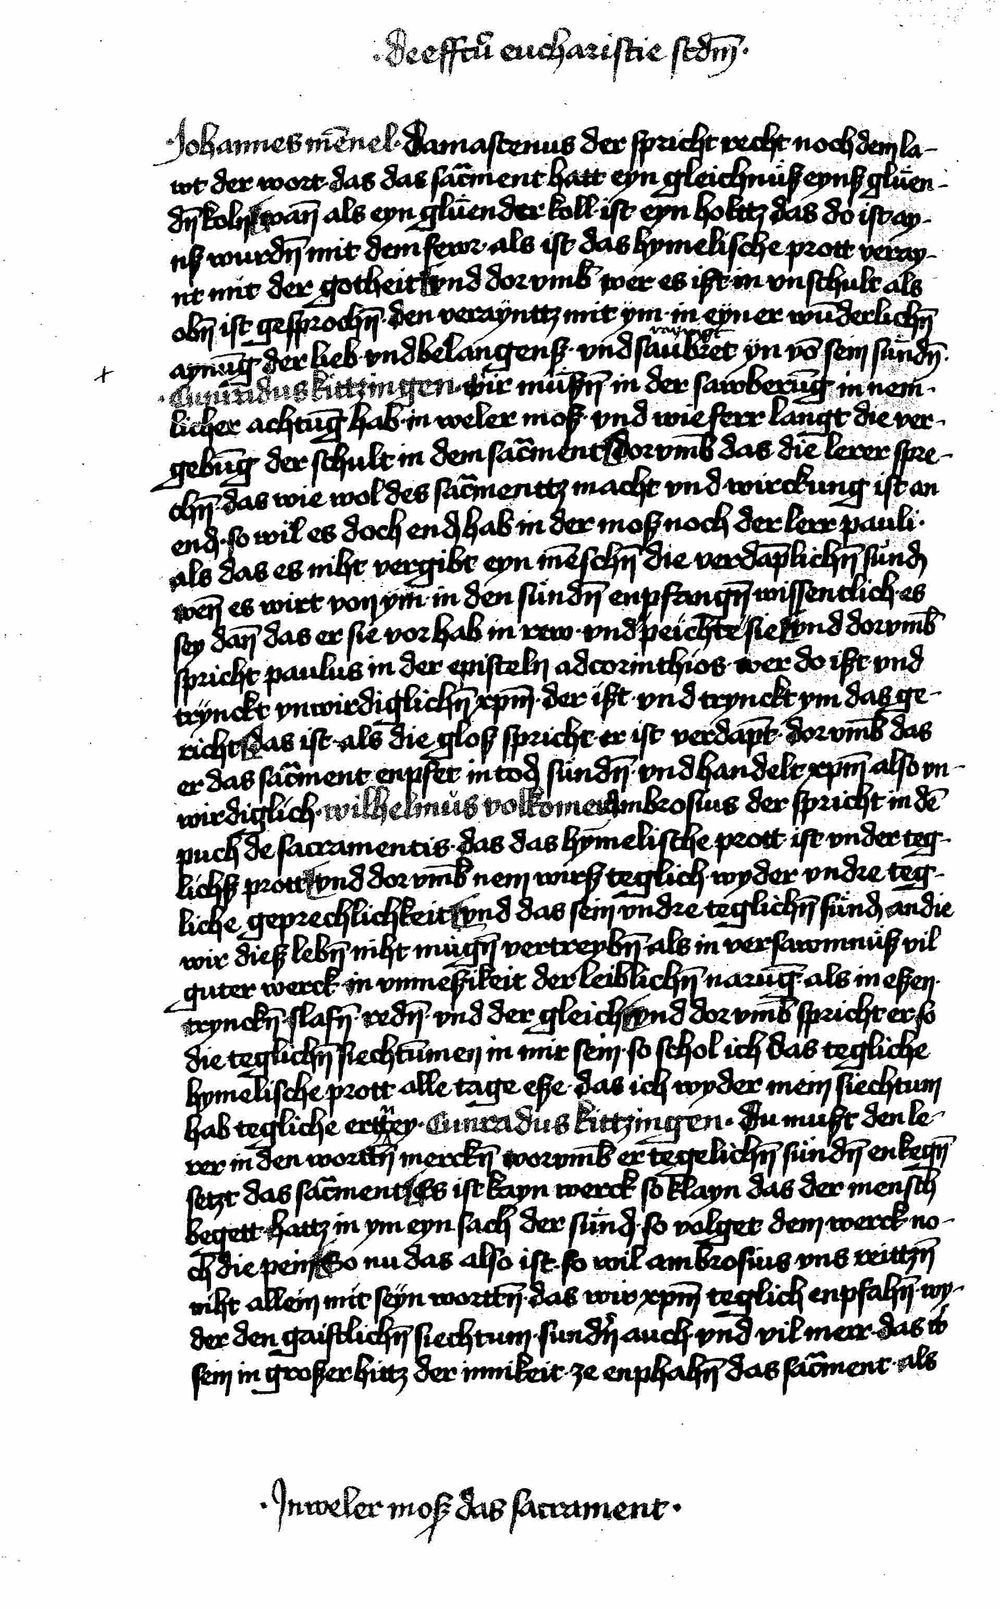 ·de effctu̅ eucharistie scd̅m̅·
·Johannes me̅nel· Damascenus der spricht recht noch dem la-
wt der wort· das das sac̅ment hatt eyn gleichnüß eynß glüen-
dn̅ koln· wan̅ als eyn glüender koll· ist eyn holttz das do ist ay-
nß wurdn̅ mit dem fewr· als ist das hymelische prott veray-
nt mit der gotheit· vnd dorvmb̅ wer es ißt in vnschult als
obn̅ ist gesprochn̅· den veraynttz mit ym· in eyner wu̅derlichn̅
aynu̅g der lieb· vnd belangenß· vnd saubret yn vo̅ sein sündn̅·
·Cunradus kittzingen· wir müßn̅ in der sawberu̅g in nem-
licher achtu̅g hab· in weler moß· vnd wie ferr langt die ver-
gebu̅g der schult in dem sac̅ment· dorvmb̅ das die lerer spre-
chn̅· das wie wol des sac̅menttz macht vnd wirckung ist an
end· so wil es doch end hab in der moß noch der lerr pauli·
als das es niht vergibt eyn me̅schn̅ die verda̅plichn̅ sünd
wen̅ es wirt von ym· in den sündn̅ enpfangn̅ wissentlich· es
sey dan̅ das er sie vor hab in rew· vnd peichte sie· vnd dorvmb̅
spricht paulus in der episteln ad corinthios· wer do ißt vnd
trynckt vnwirdiglichn̅ xpm̅· der ißt· vnd trynckt ym das ge-
richt· das ist· als die gloß spricht· er ist verdapt̅· dorvmb̅ das
er das sac̅ment enpfet in tod sündn̅· vnd handelt xpm̅ also vn-
wirdiglich· wilhelmüs volkomen· ambrosius der spricht in de̅
puch de sacramentis· das das hymelische prott· ist vnder teg-
lichß prott· vnd dorvmb̅ nem wirß teglich· wyder vndre teg-
liche geprechlichkeit· vnd das sein vndre teglichn̅ sünd· an die
wir dieß lebn̅ niht mügn̅ vertreybn̅· als in versawmnüß vil
guter werck· in vnmeßikeit der leiblichn̅ naru̅g· als in eßen·
trynckn̅· slafn̅· redn̅· vnd der gleich· vnd dorvmb̅ spricht er· so
die teglichn̅ siechtu̅men in mir sein· so schol ich das tegliche
hymelische prott· alle tage· eße· das ich wyder mein siechtum
hab tegliche erttzey· Cunradus kittzingen· Du mußt den le-
rer in den wortn̅ merckn̅ worvmb̅ er tegelichn̅ sündn̅ enkegn̅
setzt das sac̅ment· Es ist kayn werck so klayn das der mensch
begett· hattz in ym eyn sach der sünd· so volget dem werck no-
ch die pein· So nu das also ist· so wil ambrosius vns reittzn̅
niht allein mit seyn wortn̅· das wir xpm̅ teglich enpfahn̅ wy-
der den gaistlichn̅ siechtum· sundn̅ auch· vnd vil merr· das w̅
sein in großer hittz der innikeit· ze enphahn̅ das sac̅ment· als
·In weler moß das sacrament·